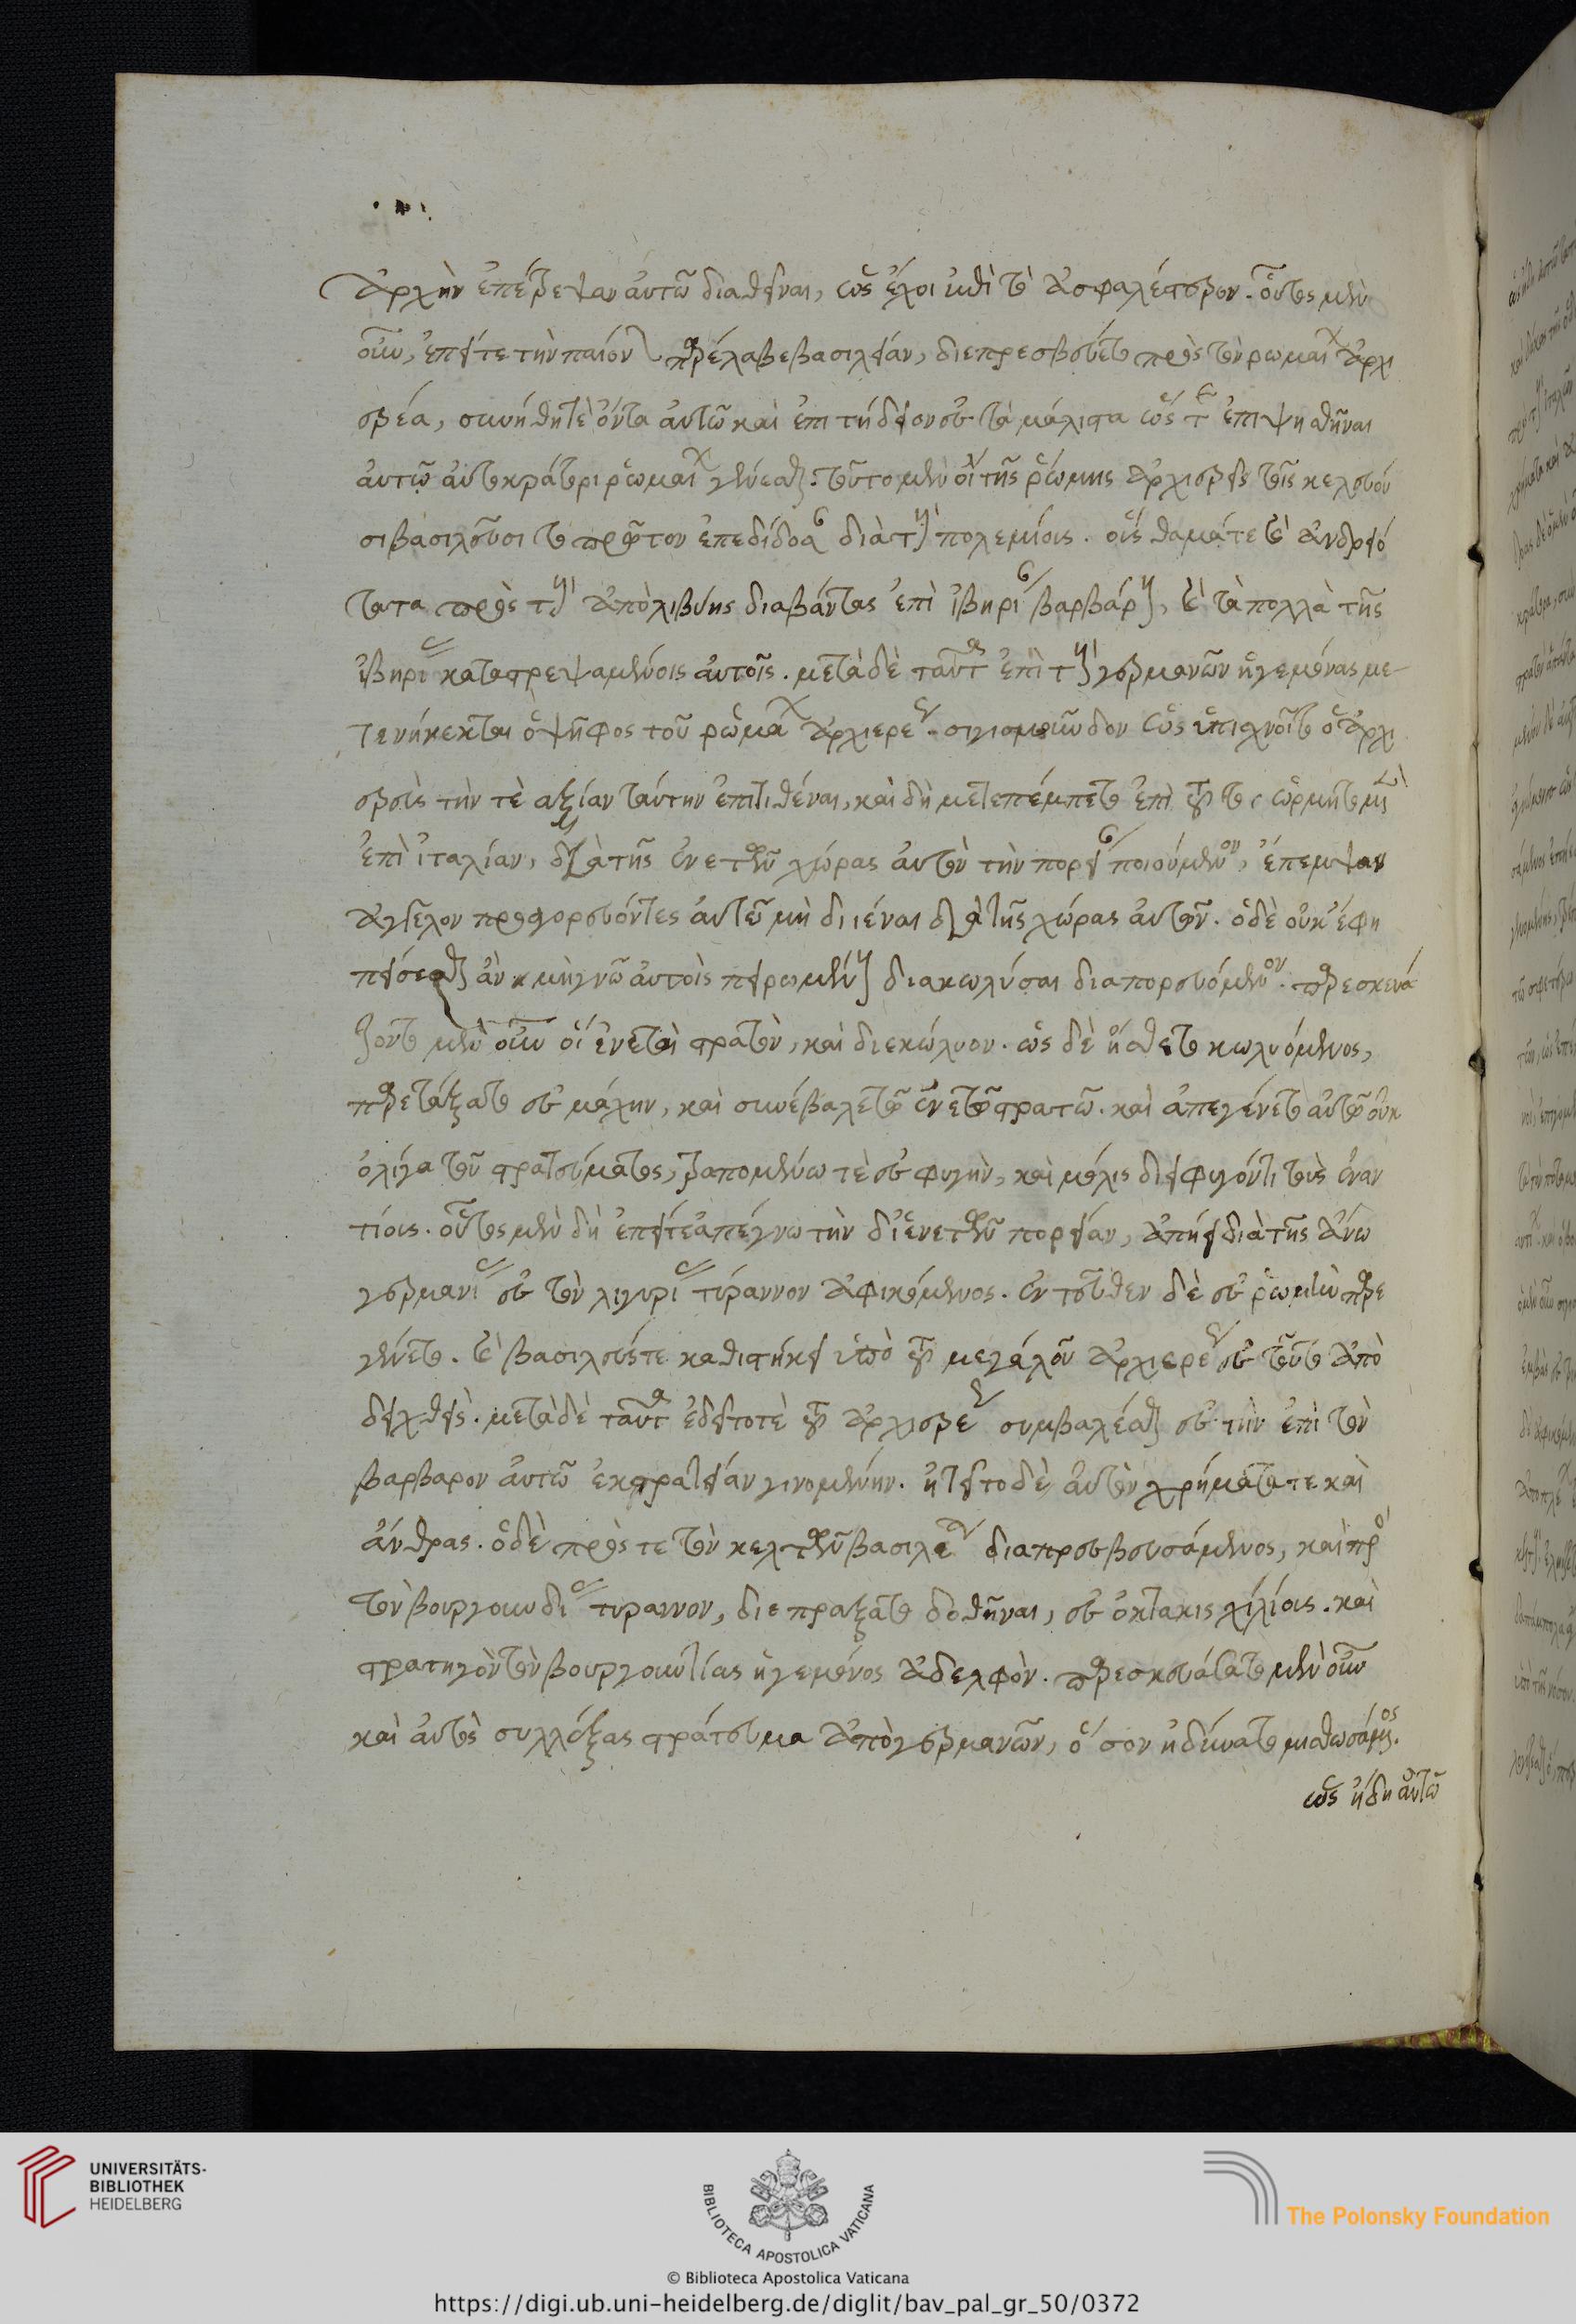 ἀρχὴν ἐπέτρεψαν αὐτῶ διαθεῖναι, ὡς ἔχοι κατὰ τὸ ἀσφαλέστερον. οὗτος μὲν
οὖν, ἐπείτε τὴν παιόνων παρέλαβε βασιλείαν, διεπρεσβεύετο πρὸς τὸν ρωμαίων ἀρχι
ερέα, συνήθη τὲ ὄντα αὐτῶ καὶ ἐπιτήδειον ἐς τὰ μάλιστα ὥς τε ἐπιψηθῆναι
αὐτῶ αὐτοκράτορι ῥωμαίων γενέσθαι. τοῦτο μὲν οἱ τῆς ῥώμης ἀρχιερεῖς τοῖς κελτῶν
σι βασιλεῦσι τὸ πρῶτον ἐπεδίδοσαν διὰ τοὺς πολεμίοις. οἷς θαμάτε καὶ ἀνδρειό
τατα πρὸς τοὺς ἀπὸ λιβύης διαβάντας ἐπὶ ἰβηρίαν βαρβάρους, καὶ τὰ πολλὰ τῆς
ἰβηρίας καταστρεψαμένοις αὐτοῖς. μετὰ δὲ ταῦτα ἐπὶ τοὺς γερμανῶν ἡγεμόνας με-
τενήνεκται ὁ ψῆφος τοῦ ρὡμαίων ἀρχιερέως. σιγισμοῦνδον ὡς ὑπισχνοῖτο ὁ ἀρχι
ερεὺς τὴν τὲ αξίαν ταύτην ἐπιτιθέναι, καὶ δὴ μετεπέμπετο ἐπὶ τοῦτο, ὥρμητο μὲν
ἐπὶ ἰταλίαν, διὰ τῆς ἐνετῶν χώρας αὐτὸν τὴν πορείαν ποιούμενον, ἔπεμψαν
ἄγγελον προαγορεύοντες αὐτῶ μὴ διιέναι διὰ τῆς χώρας αὐτῶν. ὁ δὲ οὐκ ἔφη
πείσεσθαι ἂν μὴ γνῶ αὐτοὺς πειρωμένους διακωλύσαι διαπορευόμενον. παρεσκευά
ζοντο μὲν οὖν οἱ ἐνετοὶ στρατὸν, καὶ διεκώλυον. ὡς δὲ ᾔσθετο κωλυόμενος,
παρετάξατο ἐς μάχην, καὶ συνέβαλε τῶ ἐνετῶν στρατῶ. καὶ ἀπεγένετο αὐτῶ οὐκ
ὀλίγα τοῦ στρατεύματος, τραπομένω τὲ ἐς φυγὴν, καὶ μόλις διαφυγόντι τοὺς ἐναν
τίοις. οὗτος μὲν δὴ ἐπείτε ἀπέγνω τὴν δι ἐνετῶν πορείαν, ἀπῄει διὰ τῆς ἄνω
γερμανίας ἐς τὸν λιγυρίας τύραννον ἀφικόμενος. ἐντεῦθεν δὲ ἐς ῥώμην παρε
γένετο. καὶ βασιλεύς τε καθιστήκει ὑπὸ τοῦ μεγάλου ἀρχιερέως ἐς τοῦτο ἀπο
δειχθεὶς. μετὰ δὲ ταῦτα ἐδεῖτο τὲ τοῦ ἀρχιερέως συμβαλέσθαι ἐς τὴν ἐπὶ τὸν
βαρβαρον αὐτῶ ἐκστρατείαν γινομένην. ᾐτεῖτο δὲ αὐτὸν χρήματά τε καὶ
ἄνδρας. ὁ δὲ πρὸς τε τὸν κελτῶν βασιλέα διαπρεσβευσάμενος, καὶ πρὸς
τὸν βουργουνδίας τυραννον, διεπράξατο δοθῆναι, ἐς ὀκτακις χιλίοις. καὶ
στρατηγὸν τὸν βουργουντίας ἡγεμόνος ἀδελφόν. παρεσκευάσατο μὲν οὖν
καὶ αὐτὸς συλλέξας στράτευμα ἀπὸ γερμανῶν, ὅσον ἠδύνατο μισθωσάμενος.
ὡς ἤδη αὐτῶ
UNIVERSITÄTS-
BIBLIOTHEK
HEIDELBERG
BIBLIOTECA APOSTOLICA VATICANA
© Biblioteca Apostolica Vaticana
The Polonsky Foundation
https://digi.ub.uni-heidelberg.de/diglit/bav_pal_gr_50/0372